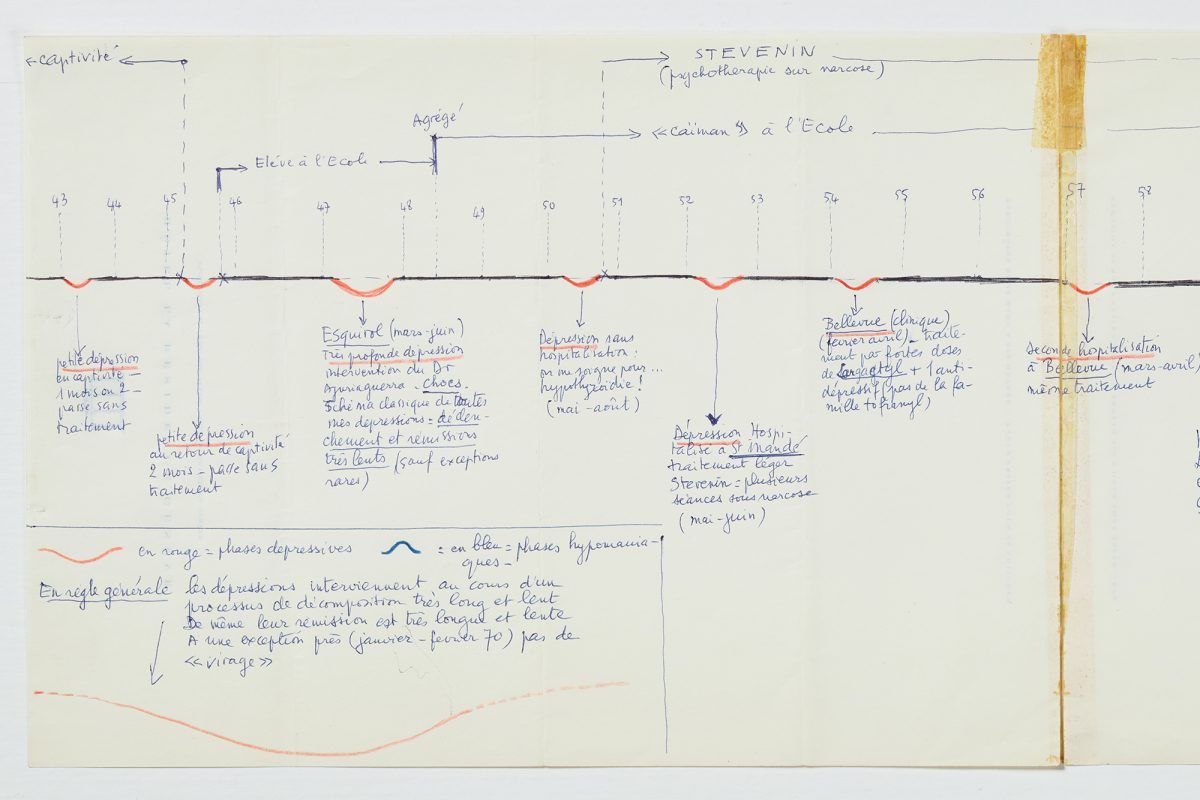 ← captivité ←
STEVENIN
(psychothérapie sur narcose)
Agrégé
« caïman » à l'Ecole
Elève à l'Ecole
43 44 45 46 47 48 49 50 51 52 53 54 55 56 57 58
petite dépression
en captivité –
1 mois ou 2 –
passe sans
traitement
petite depression
au retour de captivité
2 mois – passe sans
traitement
Esquirol (mars-juin)
très profonde dépression
intervention du Dr
Ajuriaguerra. chocs.
Schéma classique de toutes
mes dépressions = déclen-
chement et rémissions
très lents (sauf exceptions
rares)
Dépression sans
hospitalisation :
on me soigne pour...
hypothyroïdie !
(mai-août)
Dépression Hospi-
talisé à St Mandé
traitement léger
Stevenin = plusieurs
séances sous narcose
(mai-juin)
Bellevue (clinique)
(février avril). traite-
ment par fortes doses
de Largactyl + 1 anti-
dépressif (pas de la fa-
mille tofranyl)
Seconde hospitalisation
à Bellevue (mars-avril)
même traitement
en rouge = phases dépressives
= en bleu = phases hypomania-
ques –
En règle générale les dépressions interviennent au cours d'un
processus de décomposition très long et lent
De même leur remission est très longue et lente
A une exception près (janvier-fevrier 70) pas de
« virage »